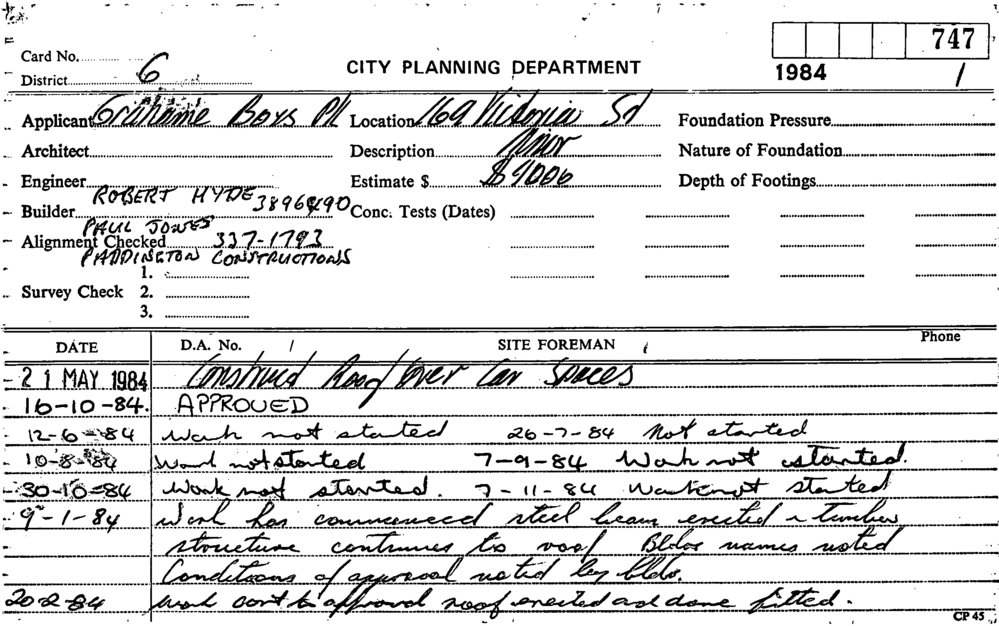 Card No.
District 6
CITY PLANNING DEPARTMENT
747
1984 /
Applicant Grahame Boys PL Location 169 Victoria St Foundation Pressure
Architect Description Minor Nature of Foundation
Engineer Estimate $ $9000 Depth of Footings
Builder ROBERT HYDE 3896490 Conc. Tests (Dates)
PAUL JONES
Alignment Checked 337-1793
PADDINGTON CONSTRUCTIONS
1.
Survey Check 2.
3.
DATE D.A. No. / SITE FOREMAN Phone
21 MAY 1984 Construct Roof Over Car Spaces
16-10-84. APPROVED
12-6-84 Work not started 26-7-84 Not started
10-8-84 Work not started 7-9-84 Work not started.
30-10-84 Work not started. 7-11-84 Work not started
9-1-84 Work has commenced steel beam erected & timber
structure continues to roof Bldrs names noted
Conditions of approval noted by bldr.
20-2-84 Work cont to approval roof erected and done fitted.
CP 45